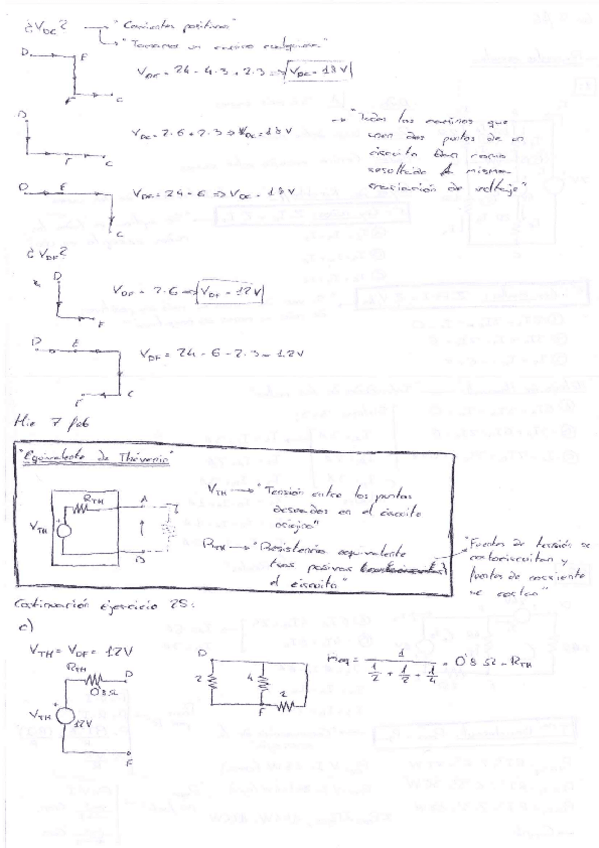 ¿VDC? → "Corrientes positivas"
→ "Tomamos un camino cualquiera"
D E
VDC = 24 - 4·3 + 2·3 ⇒ VDC = 18V
F C
D
VDC = 2·6 + 2·3 ⇒ VDC = 18V
F C
→ "Todos los caminos que
unen dos puntos de un
circuito dan como
resultado la misma
variación de voltaje"
D E
VDC = 24 - 6 ⇒ VDC = 18V
C
¿VDF?
D
VDF = 2·6 ⇒ VDF = 12V
F
D E
VDF = 24 - 6 - 2·3 = 12V
F C
Mie 7 feb
"Equivalente de Thévenin"
RTH A
VTH
B
VTH → "Tensión entre los puntos
deseados en el circuito
RTH → "Resistencia equivalente
tras pasivar
el circuito"
"Fuentes de tensión se
cortocircuitan y
fuentes de corriente
se cortan"
Continuación ejercicio 25:
c)
VTH = VDF = 12V
RTH D
0'8Ω
VTH 12V
F
D
2 4 2
F
Req = 1 / (1/2 + 1/2 + 1/4) = 0'8 Ω = RTH